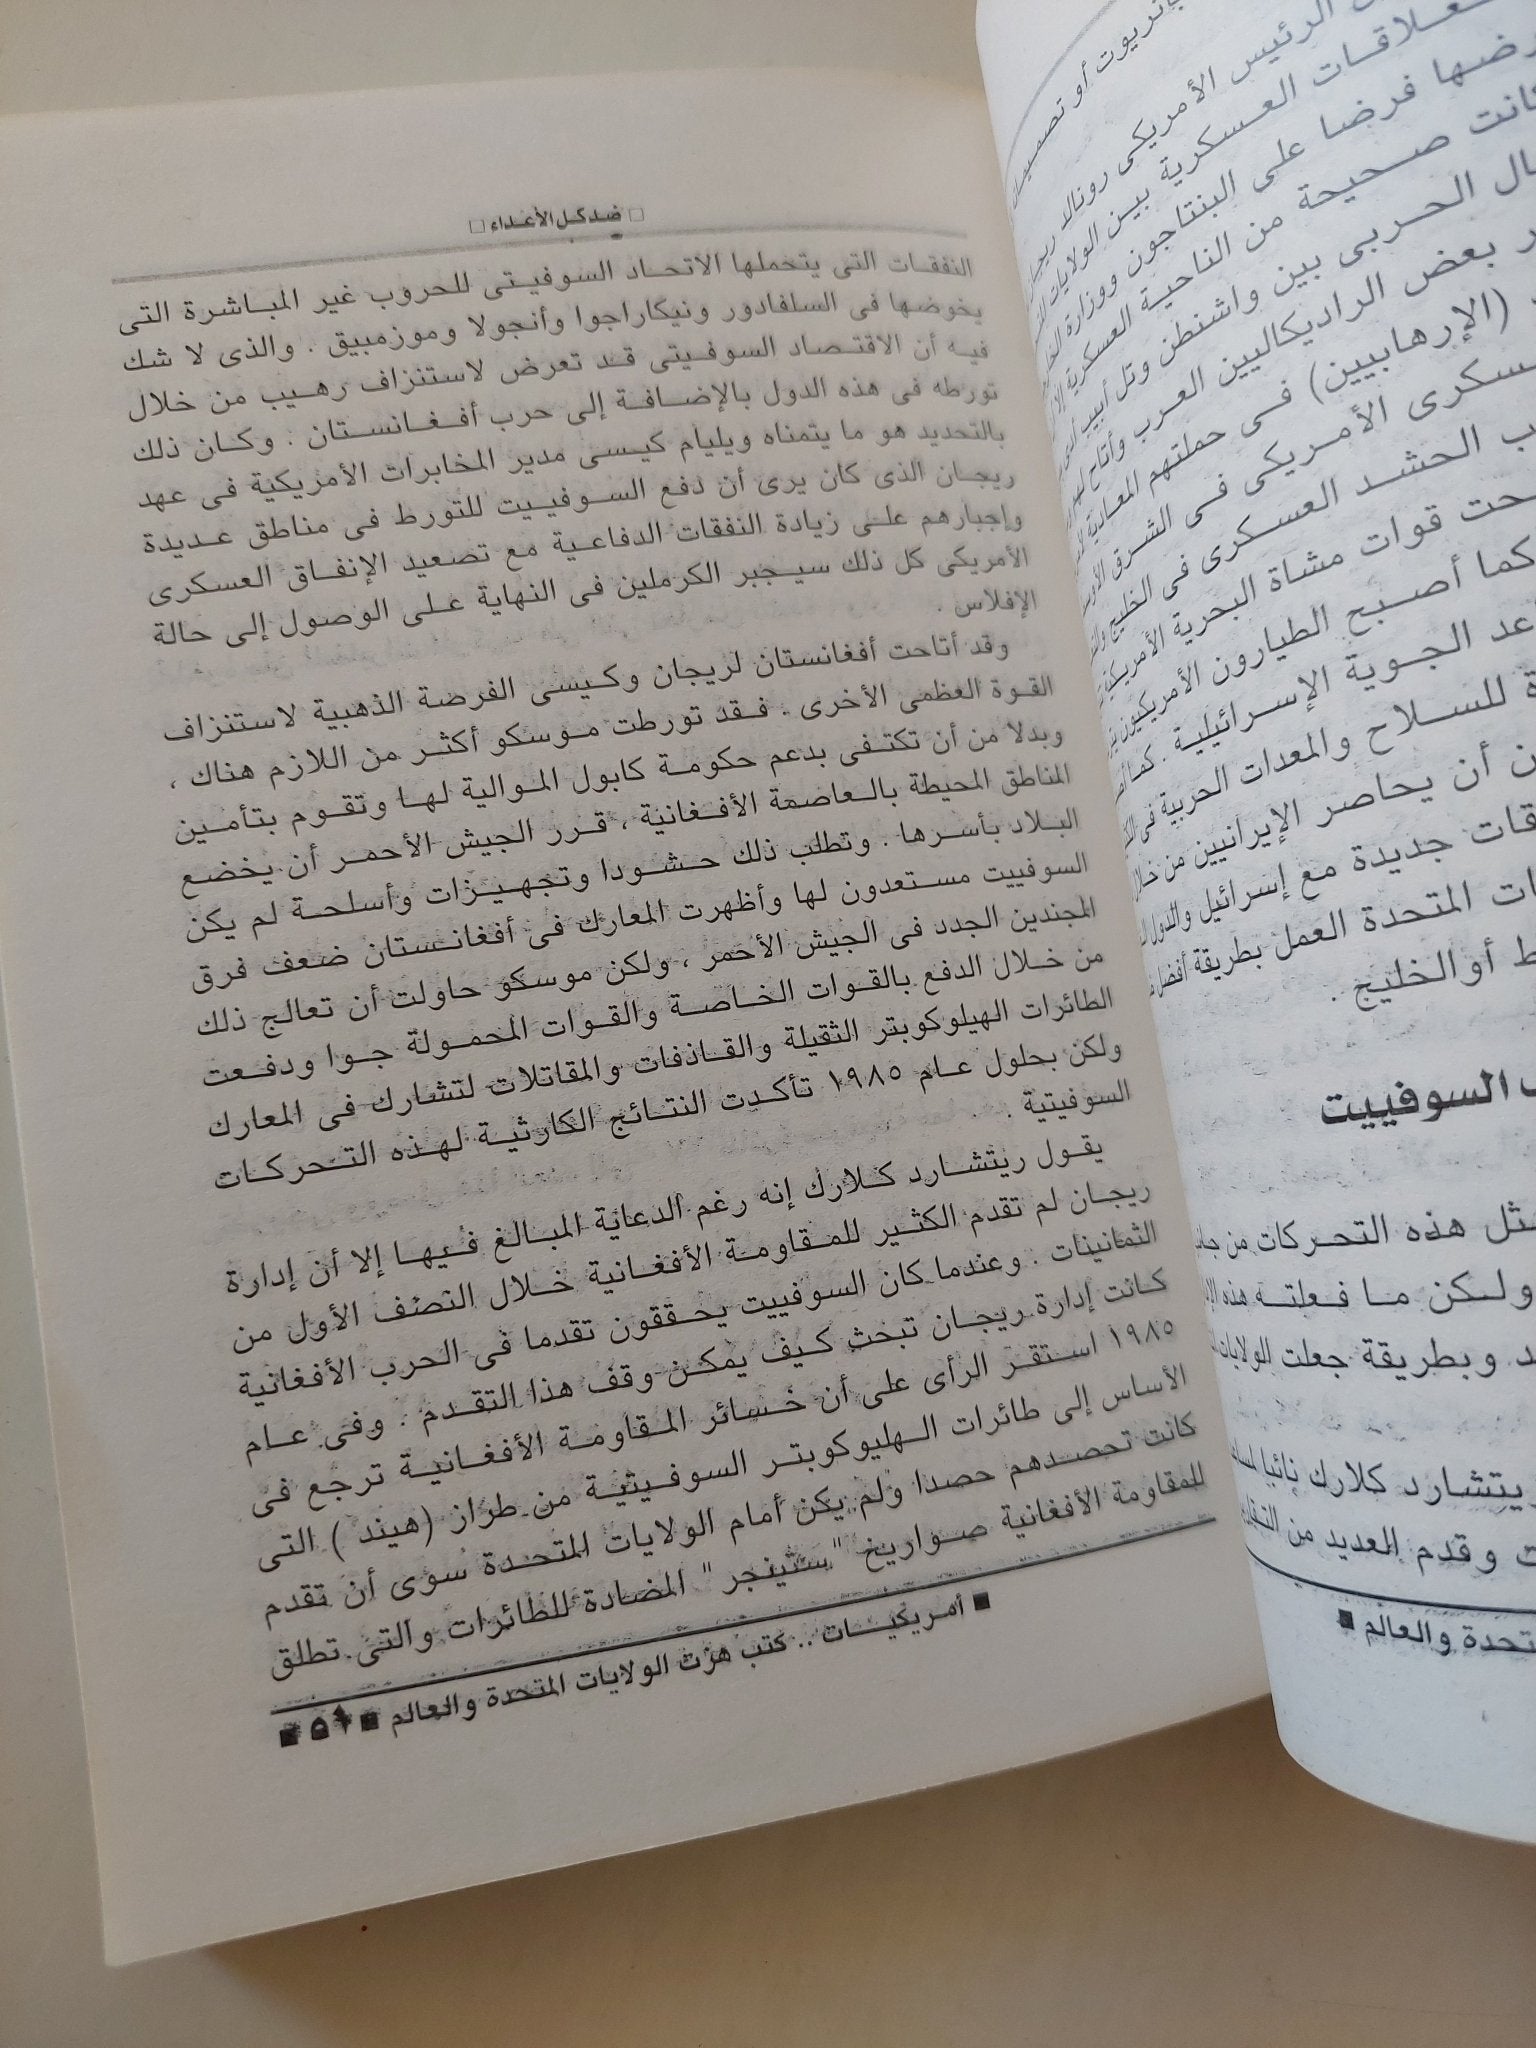 باتريوت أو تصميمات
الرئيس الأمريكى رونالد ريجان
علاقات العسكرية بين الولايات
فرضا على البنتاجون ووزارة
كانت صحيحة من الناحية العسكرية
الحربى بين واشنطن وتل أبيب
بعض الراديكاليين العرب وأتاح لهم
(الإرهابيين) فى حملتهم المعادية
الأمريكى فى الشرق
الحشد العسكرى فى الخليج
قوات مشاة البحرية الأمريكية
كما أصبح الطيارون الأمريكيون
الجوية الإسرائيلية . كما
للسلاح والمعدات الحربية فى
أن يحاصر الإيرانيين من خلال
جديدة مع إسرائيل والدول
المتحدة العمل بطريقة أفضل
أو الخليج .
السوفييت
هذه التحركات من
ولكن ما فعلته هذه
وبطريقة جعلت الولايات
ريتشارد كلارك نائبا
وقدم العديد من
والعالم ■
□ ضد كل الأعداء □
النفقات التى يتحملها الاتحاد السوفيتى للحروب غير المباشرة التى
يخوضها فى السلفادور ونيكاراجوا وأنجولا وموزمبيق . والذى لا شك
فيه أن الاقتصاد السوفيتى قد تعرض لاستنزاف رهيب من خلال
تورطه فى هذه الدول بالإضافة إلى حرب أفغانستان . وكان ذلك
بالتحديد هو ما يتمناه ويليام كيسى مدير المخابرات الأمريكية فى عهد
ريجان الذى كان يرى أن دفع السوفييت للتورط فى مناطق عديدة
وإجبارهم على زيادة النفقات الدفاعية مع تصعيد الإنفاق العسكرى
الأمريكى كل ذلك سيجبر الكرملين فى النهاية على الوصول إلى حالة
الإفلاس .
وقد أتاحت أفغانستان لريجان وكيسى الفرصة الذهبية لاستنزاف
القوة العظمى الأخرى . فقد تورطت موسكو أكثر من اللازم هناك ،
وبدلا من أن تكتفى بدعم حكومة كابول الموالية لها وتقوم بتأمين
المناطق المحيطة بالعاصمة الأفغانية ، قرر الجيش الأحمر أن يخضع
البلاد بأسرها . وتطلب ذلك حشودا وتجهيزات وأسلحة لم يكن
السوفييت مستعدون لها وأظهرت المعارك فى أفغانستان ضعف فرق
المجندين الجدد فى الجيش الأحمر ، ولكن موسكو حاولت أن تعالج ذلك
من خلال الدفع بالقوات الخاصة والقوات المحمولة جوا ودفعت
الطائرات الهيلوكوبتر الثقيلة والقاذفات والمقاتلات لتشارك فى المعارك
ولكن بحلول عام ١٩٨٥ تأكدت النتائج الكارثية لهذه التحركات
السوفيتية .
يقول ريتشارد كلارك إنه رغم الدعاية المبالغ فيها إلا أن إدارة
ريجان لم تقدم الكثير للمقاومة الأفغانية خلال النصف الأول من
الثمانينات . وعندما كان السوفييت يحققون تقدما فى الحرب الأفغانية
كانت إدارة ريجان تبحث كيف يمكن وقف هذا التقدم . وفى عام
١٩٨٥ استقر الرأى على أن خسائر المقاومة الأفغانية ترجع فى
الأساس إلى طائرات الهليوكوبتر السوفيتية من طراز (هيند ) التى
كانت تحصدهم حصدا ولم يكن أمام الولايات المتحدة سوى أن تقدم
للمقاومة الأفغانية صواريخ "ستينجر" المضادة للطائرات والتى تطلق
■ أمريكيات .. كتب هزت الولايات المتحدة والعالم ■